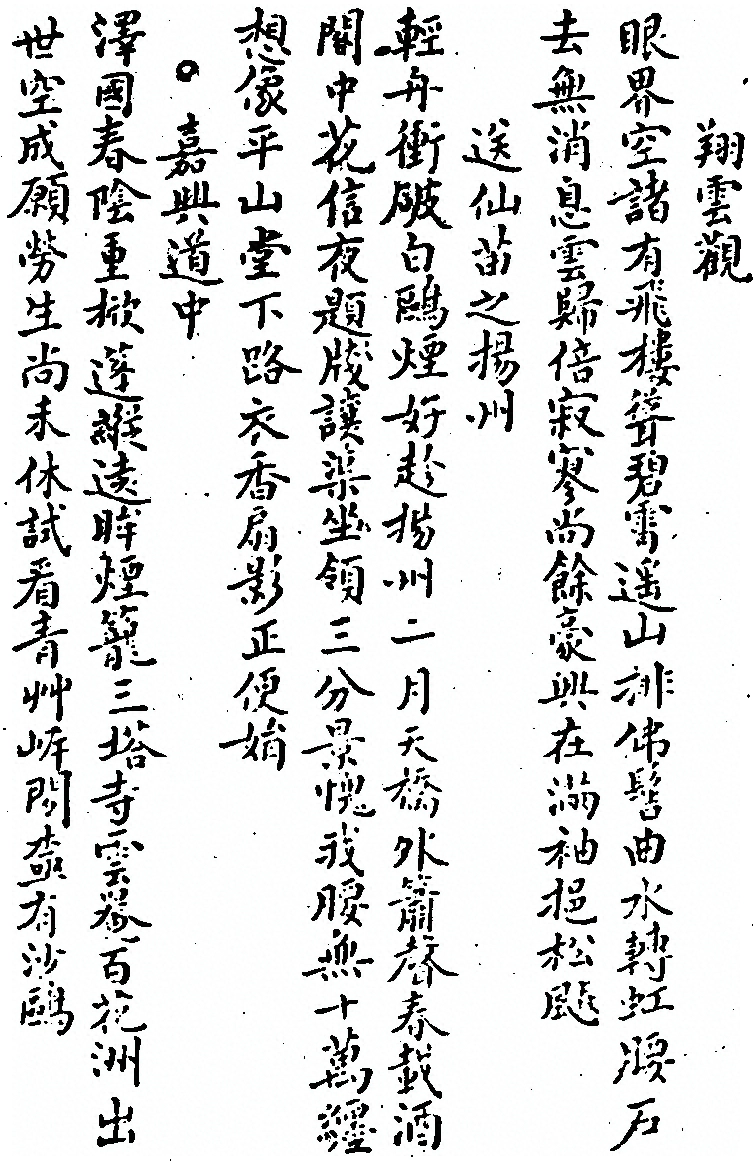 翔雲觀
眼界空諸有飛樓聳碧霄遥山排佛髻曲水轉虹腰石
去無消息雲歸倍寂寥尚餘豪興在滿袖挹松颸
送仙苗之揚州
輕舟衝破白鷗煙好趁揚州二月天橋外簫聲春載酒
閣中花信夜題牋讓渠坐領三分景愧我腰無十萬纏
想像平山堂下路衣香扇影正便娟
嘉興道中
澤國春陰重推蓬縱遠眸煙籠三塔寺雲養百花洲出
世空成願勞生尚未休試看青艸岸閒煞有沙鷗